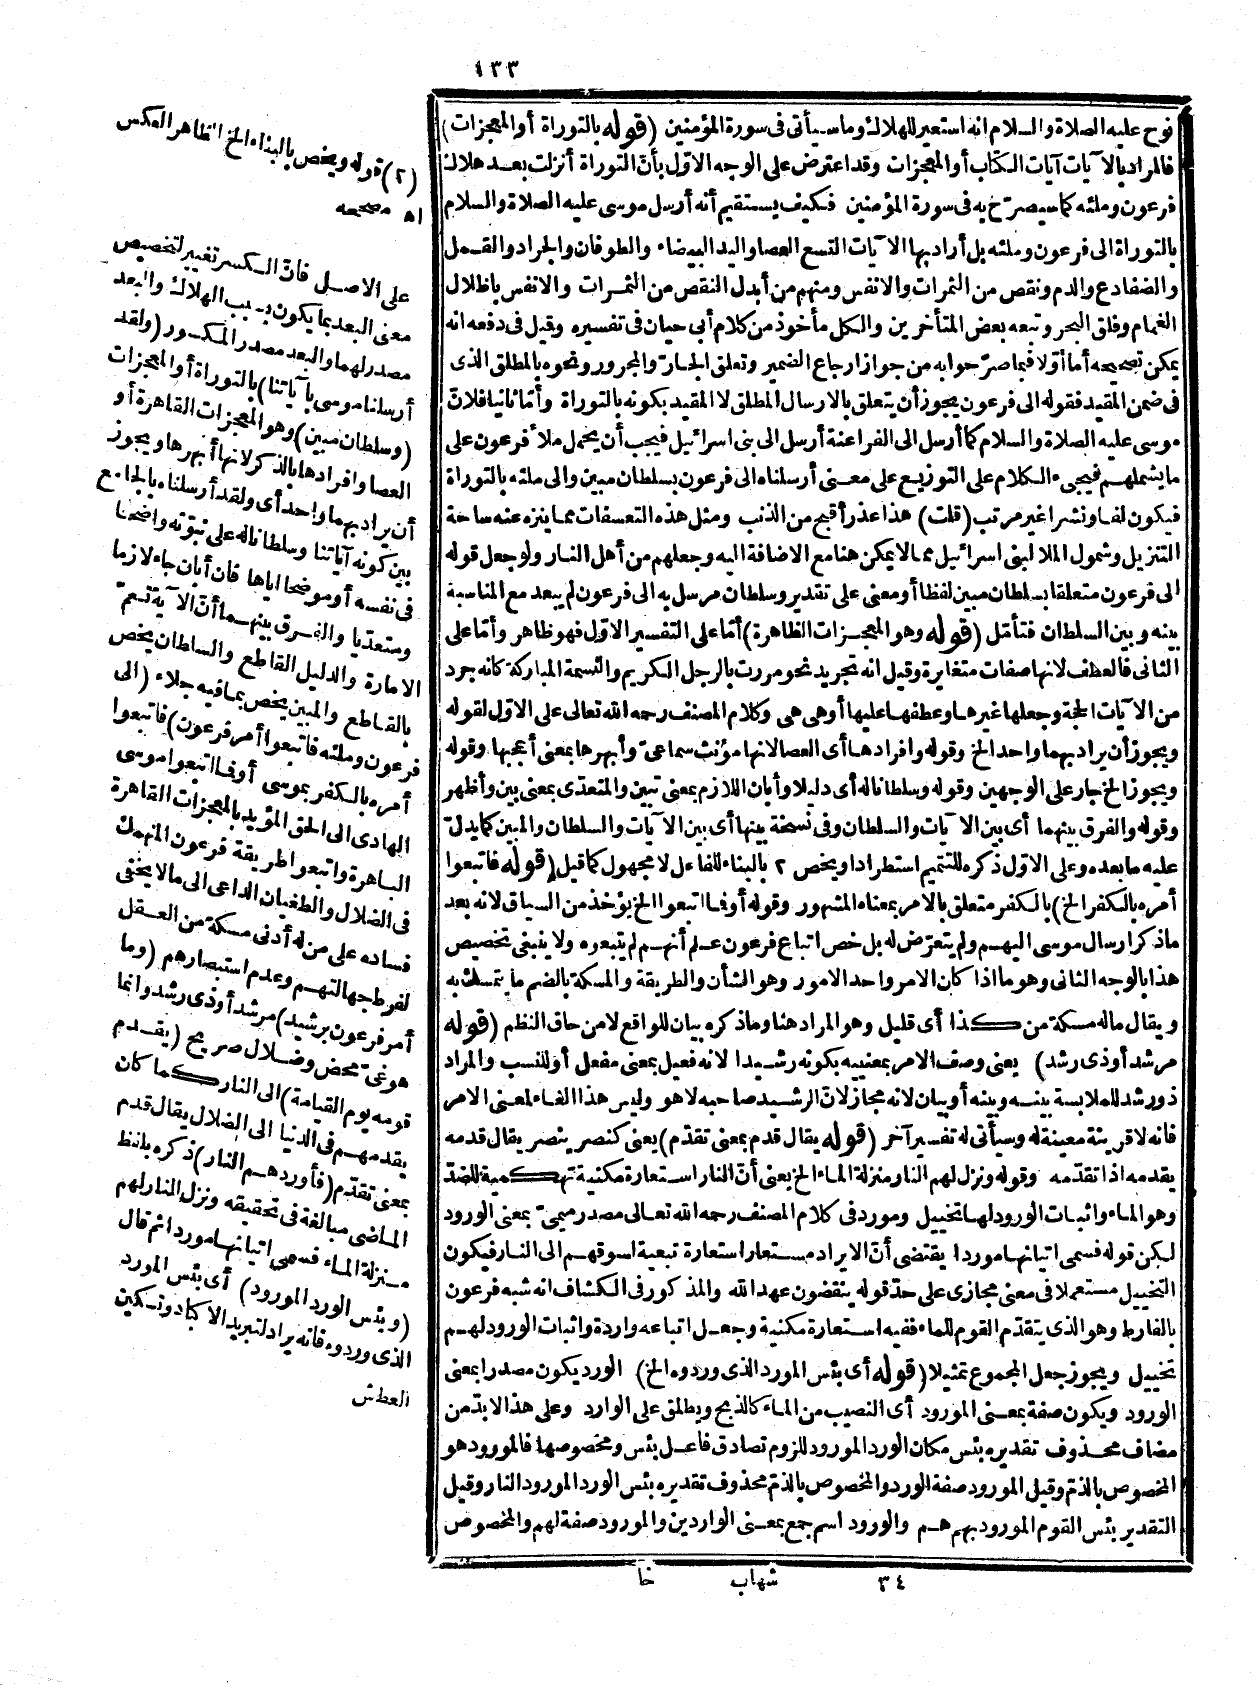 ١٣٣
نوح عليه الصلاة والسلام انه استعير للهلاك وما سيأتى فى سورة المؤمنين (قوله بالتوراة أو المعجزات)
فالمراد بالآيات آيات الكتاب أو المعجزات وقد اعترض على الوجه الاوّل بأنّ التوراة أنزلت بعد هلاك
فرعون وملئه كما سيصرّح به فى سورة المؤمنين فكيف يستقيم أنه أرسل موسى عليه الصلاة والسلام
بالتوراة الى فرعون وملئه بل أراد بها الآيات التسع العصا واليد البيضاء والطوفان والجراد والقمل
والضفادع والدم ونقص من الثمرات والانفس ومنهم من أبدل النقص من الثمرات والانفس باظلال
الغمام وفلق البحر وتبعه بعض المتأخرين والكل مأخوذ من كلام أبى حيان فى تفسيره وقيل فى دفعه انه
يمكن تصحيحه أما أوّلا فبما صرّحوا به من جواز ارجاع الضمير وتعلق الجارّ والمجرور ونحوه بالمطلق الذى
فى ضمن المقيد فقوله الى فرعون يجوز أن يتعلق بالارسال المطلق لا المقيد بكونه بالتوراة وأمّا ثانيا فلانّ
موسى عليه الصلاة والسلام كما أرسل الى الفراعنة أرسل الى بنى اسرائيل فيجب أن يحمل ملأ فرعون على
ما يشملهم فيجىء الكلام على التوزيع على معنى أرسلناه الى فرعون بسلطان مبين والى ملئه بالتوراة
فيكون لفا ونشرا غير مرتب (قلت) هذا عذر أقبح من الذنب ومثل هذه التعسفات مما ينزه عنه ساحة
التنزيل وشمول الملا لبنى اسرائيل مما لا يمكن هنا مع الاضافة اليه وجعلهم من أهل النار ولو جعل قوله
الى فرعون متعلقا بسلطان مبين لفظا أو معنى على تقدير وسلطان مرسل به الى فرعون لم يبعد مع المناسبة
بينه وبين السلطان فتأمّل (قوله وهو المعجزات القاهرة) أمّا على التفسير الاوّل فهو ظاهر وأمّا على
الثانى فالعطف لانها صفات متغايرة وقيل انه تجريد نحو مررت بالرجل الكريم والنسمة المباركة كانه جرد
من الآيات الحجة وجعلها غيرها وعطفها عليها أو هى هى وكلام المصنف رحمه الله تعالى على الاوّل لقوله
ويجوز أن يراد بهما واحد الخ وقوله وافرادها أى العصا لانها مؤنث سماعىّ وأبهرها بمعنى أعجبها وقوله
ويجوز الخ جار على الوجهين وقوله وسلطانا له أى دليلا وأبان اللازم بمعنى تبين والمتعدّى بمعنى بين وأظهر
وقوله والفرق بينهما أى بين الآيات والسلطان وفى نسخة بينها أى بين الآيات والسلطان والمبين كما يدلّ
عليه ما بعده وعلى الاوّل ذكره للتتميم استطرادا ويخص ٢ بالبناء للفاعل لا مجهول كما قيل (قوله فاتبعوا
أمره بالكفر الخ) بالكفر متعلق بالامر بمعناه المشهور وقوله أو فما اتبعوا الخ يؤخذ من السياق لانه بعد
ما ذكر ارسال موسى اليهم ولم يتعرّض له بل خص اتباع فرعون علم أنهم لم يتبعوه ولا ينبغى تخصيص
هذا بالوجه الثانى وهو ما اذا كان الامر واحد الامور وهو الشأن والطريقة والمسكة بالضم ما يتمسك به
ويقال ماله مسكة من كذا أى قليل وهو المراد هنا وما ذكره بيان للواقع لا من حاق النظم (قوله
مرشد أو ذى رشد) يعنى وصف الامر بمعنييه بكونه رشيدا لانه فعيل بمعنى مفعل أو للنسب والمراد
ذو رشد للملابسة بينه وبينه أو بيان لانه مجاز لانّ الرشيد صاحبه لا هو وليس هذا الفاء لمعنى الامر
فانه لا قرينة معينة له وسيأتى له تفسير آخر (قوله يقال قدم بمعنى تقدّم) يعنى كنصر ينصر يقال قدمه
يقدمه اذا تقدّمه وقوله ونزل لهم النار منزلة الماء الخ يعنى أنّ النار استعارة مكنية تهكمية للضدّ
وهو الماء واثبات الورود لها تخييل ومورد فى كلام المصنف رحمه الله تعالى مصدر ميمىّ بمعنى الورود
لكن قوله فسمى اتيانها موردا يقتضى أنّ الايراد مستعار استعارة تبعية لسوقهم الى النار فيكون
التخييل مستعملا فى معنى مجازى على حدّ قوله ينقضون عهد الله والمذكور فى الكشاف انه شبه فرعون
بالفارط وهو الذى يتقدّم القوم للماء ففيه استعارة مكنية وجعل اتباعه واردة واثبات الورود لهم
تخييل ويجوز جعل المجموع تمثيلا (قوله أى بئس المورد الذى وردوه الخ) الورد يكون مصدرا بمعنى
الورود ويكون صفة بمعنى المورود أى النصيب من الماء كالذبح ويطلق على الوارد وعلى هذا لا بدّ من
مضاف محذوف تقديره بئس مكان الورد المورود للزوم تصادق فاعل بئس ومخصوصها فالمورود هو
المخصوص بالذمّ وقيل المورود صفة الورد والمخصوص بالذمّ محذوف تقديره بئس الورد المورود النار وقيل
التقدير بئس القوم المورود بهم هم والورود اسم جمع بمعنى الواردين والمورود صفة لهم والمخصوص
٣٤ شهاب خا
(٢) قوله ويخص بالبناء الخ الظاهر العكس
اه مصححه
على الاصل فانّ الكسر تغيير لتخصيص
معنى البعد بما يكون بسبب الهلاك والبعد
مصدر لهما والبعد مصدر المكسور (ولقد
أرسلنا موسى بآياتنا) بالتوراة أو المعجزات
(وسلطان مبين) وهو المعجزات القاهرة أو
العصا وافرادها بالذكر لانها أبهرها ويجوز
أن يراد بهما واحد أى ولقد أرسلناه بالجامع
بين كونه آياتنا وسلطانا له على نبوّته واضحا
فى نفسه أو موضحا اياها فان أبان جاء لازما
ومتعديا والفرق بينهما أنّ الآية تعمّ
الامارة والدليل القاطع والسلطان يخص
بالقاطع والمبين يخص بما فيه جلاء (الى
فرعون وملئه فاتبعوا أمر فرعون) فاتبعوا
أمره بالكفر بموسى أو فما اتبعوا موسى
الهادى الى الحق المؤيد بالمعجزات القاهرة
الباهرة واتبعوا طريقة فرعون المنهمك
فى الضلال والطغيان الداعى الى ما لا يخفى
فساده على من له أدنى مسكة من العقل
لفرط جهالتهم وعدم استبصارهم (وما
أمر فرعون برشيد) مرشد أو ذى رشد وانما
هو غىّ محض وضلال صريح (يقدم
قومه يوم القيامة) الى النار كما كان
يقدمهم فى الدنيا الى الضلال يقال قدم
بمعنى تقدّم (فأوردهم النار) ذكره بلفظ
الماضى مبالغة فى تحقيقه ونزل النار لهم
منزلة الماء فسمى اتيانها موردا ثم قال
(وبئس الورد المورود) أى بئس المورد
الذى وردوه فانه يراد لتبريد الاكباد وتسكين
العطش